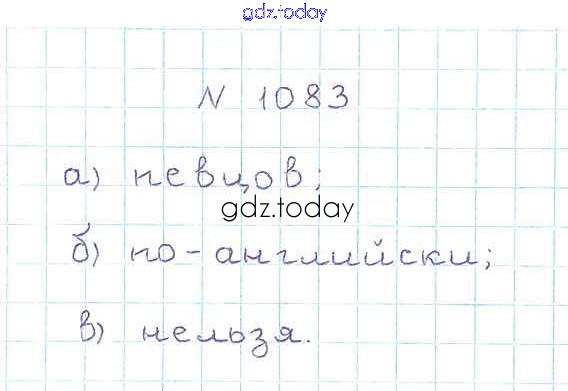 gdz.today
N 1083
а) певцов;
gdz.today
б) по-английски;
в) нельзя.